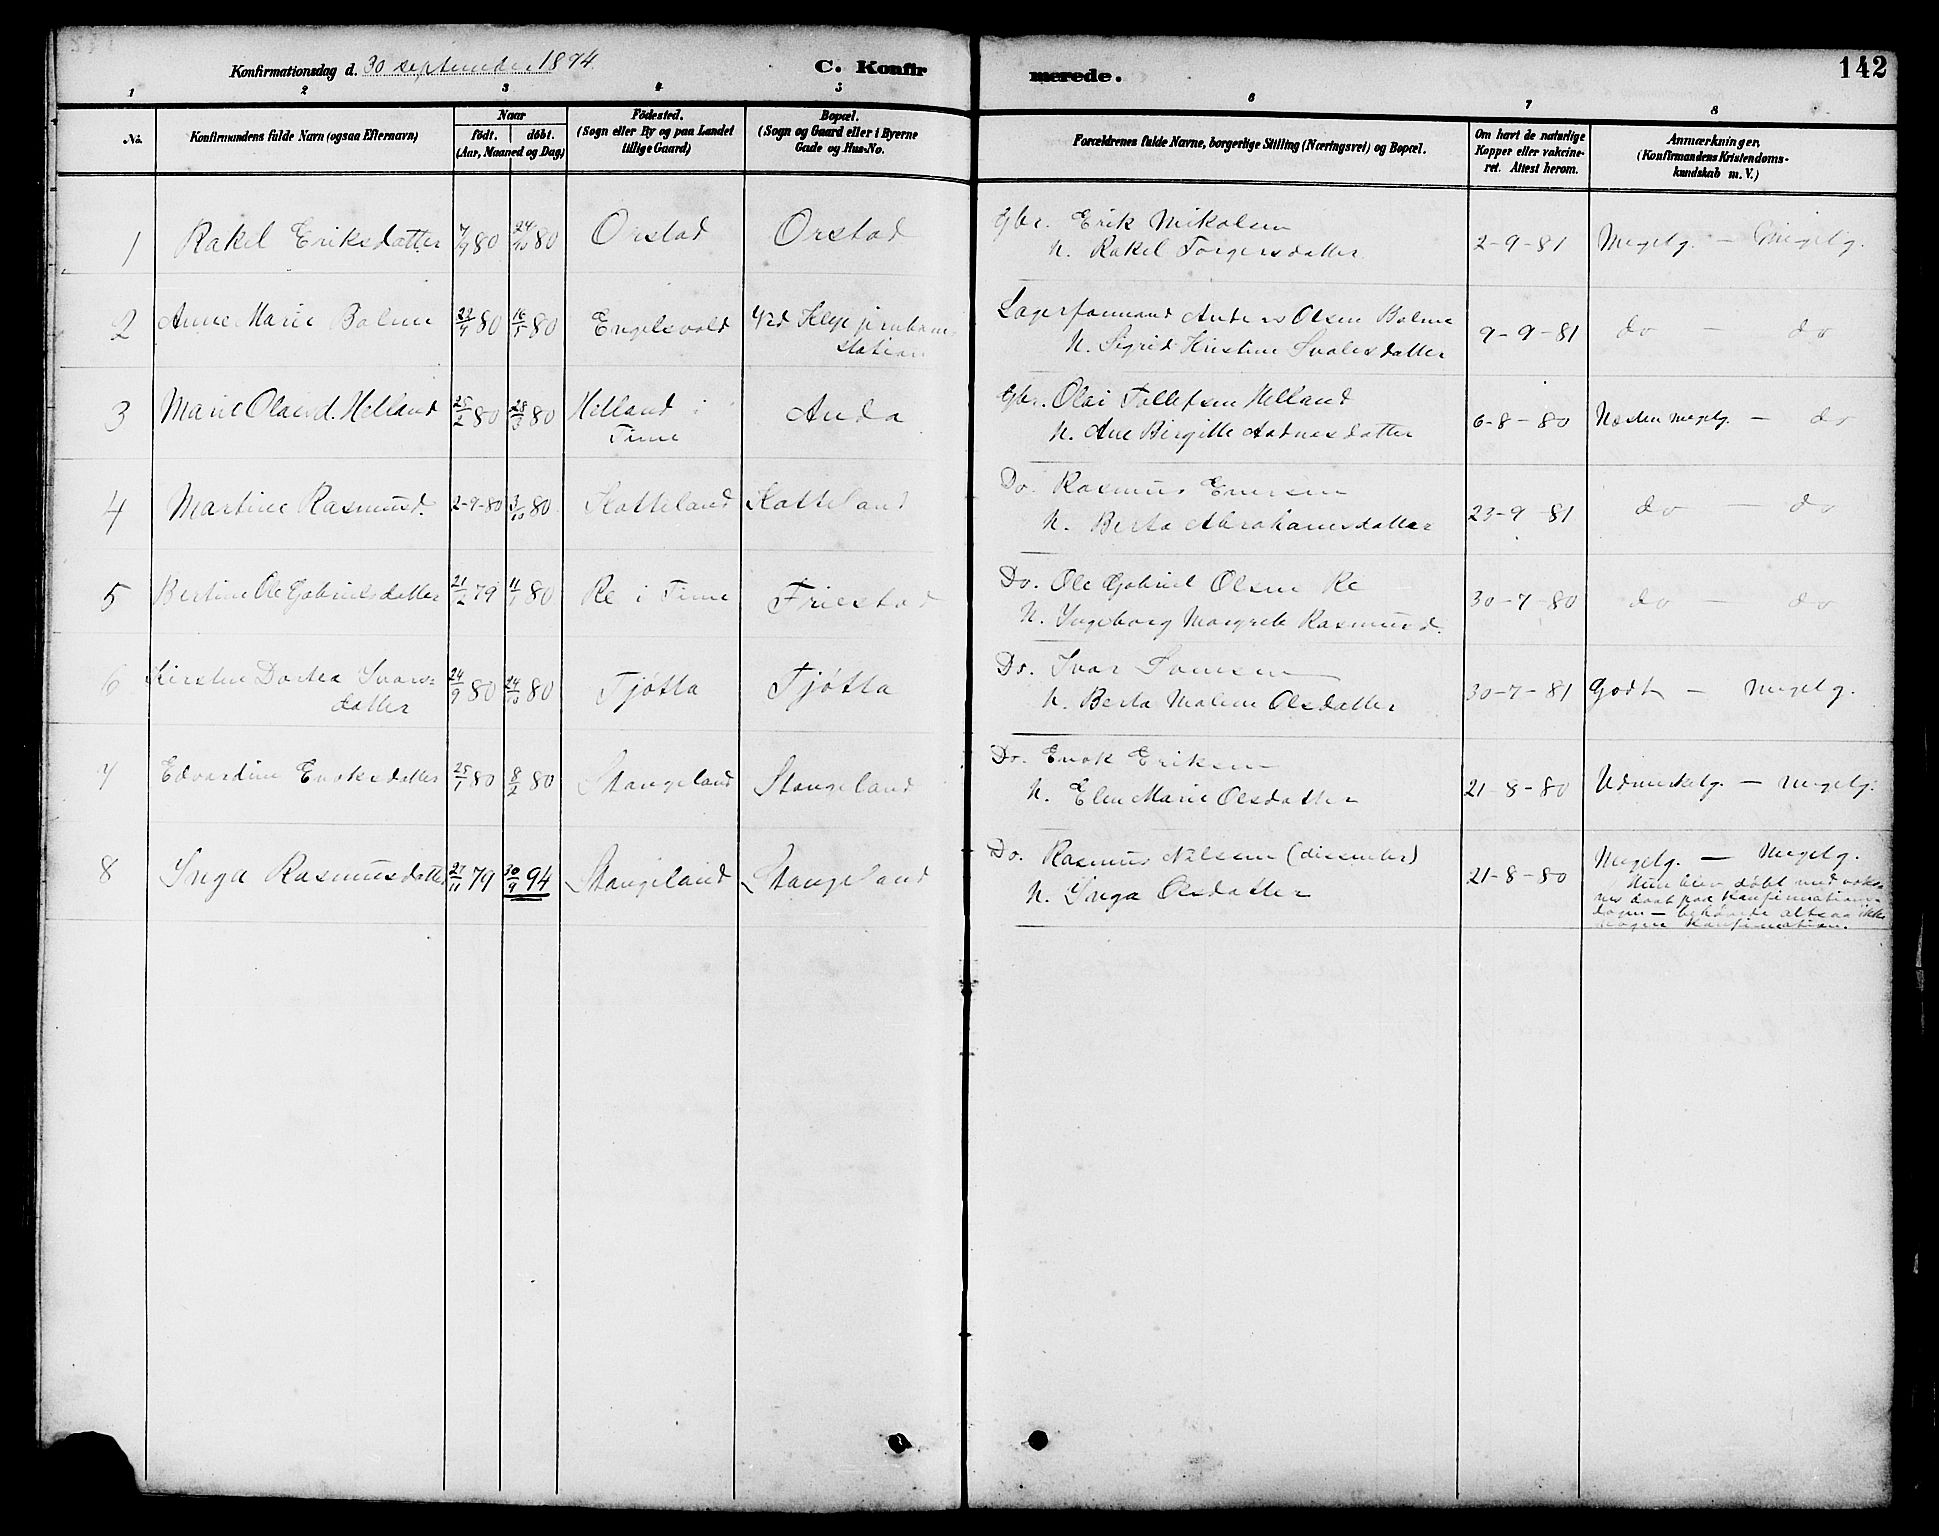 Konfirmationsdag d. 30 september 1894.
C. Konfirmerede.
142
1 2 3 4 5 6 7 8
No.
Konfirmandens fulde Navn (ogsaa Efternavn)
Naar
födt. döbt.
(Aar, Maaned og Dag)
Födested.
(Sogn eller By og paa Landet
tillige Gaard)
Bopæl.
(Sogn og Gaard eller i Byerne
Gade og Hus-No.
Forældrenes fulde Navne, borgerlige Stilling (Næringsvei) og Bopæl.
Om havt de naturlige
Kopper eller vakcine-
ret. Attest herom.
Anmærkninger.
(Konfirmandens Kristendoms-
kundskab m. V.)
1 Rakel Eriksdatter 7/9 80 24/10 80 Orstad Orstad Gbr. Erik Mikalsen
H. Rakel Torgersdatter 2-9-81 Megetg. — Megetg.
2 Anne Marie Bolme 22/4 80 16/5 80 Engelsvold ved Klep jernban-
station Lagerformand Anders Olsen Bolme
H. Sigrid Kristine Svalesdatter 9-9-81 do — do
3 Marie Olaisd. Helland 25/2 80 28/3 80 Helland i
Time Anda Gbr. Olai Tollefsen Helland
H. Ane Birgitte Aadnesdatter 6-8-80 Næsten megetg. — do
4 Martine Rasmusd. 2-9-80 3/10 80 Skatteland Skatteland Do. Rasmus Enersen
H. Berta Abrahamsdatter 23-9 81 do — do
5 Bertine Ole Gabrielsdatter 21/12 79 11/1 80 Re i Time Friestad Do. Ole Gabriel Olsen Re
H. Ingeborg Margrete Rasmusd. 30-7-80 do — do
6 Kirsten Dortea Ivars-
datter 24/9 80 24/10 80 Tjøtta Tjøtta Do. Ivar
H. Berta Malene Olsdatter 30-7-81 Godt — megetg.
7 Edvardine Enoksdatter 25/1 80 8/2 80 Stangeland Stangeland Do. Enok Eriksen
H. Elen Marie Olsdatter 21-8-80 Udmerketg. — megetg.
8 Inga Rasmusdatter 27/11 79 30/9 94 Stangeland Stangeland Do. Rasmus Nilsen (dissenter)
H. Inga Olsdatter 21-8-80 Megetg. — Megetg.
Hun blev døbt med voks-
nes daab paa Konfirmations-
dagen — behøvede altsaa ikke
nogen Konfirmation.